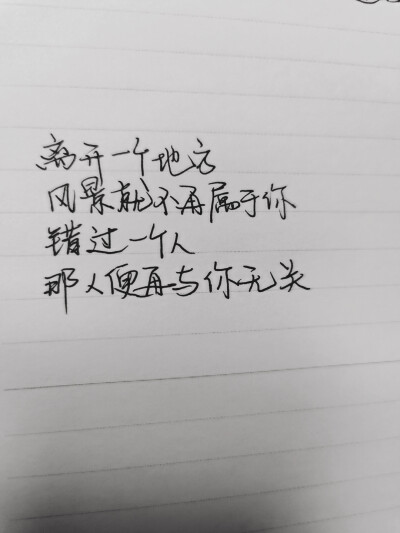 离开一个地方
风景就不再属于你
错过一个人
那人便再与你无关